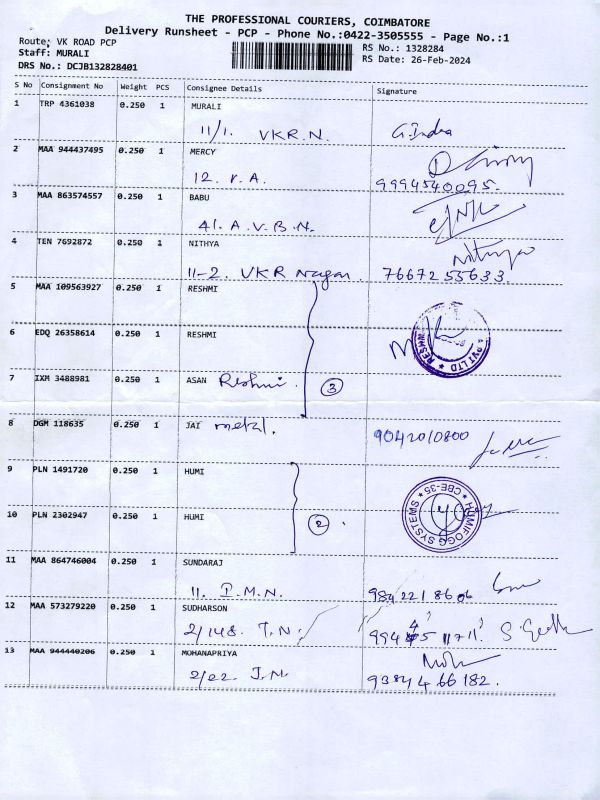 THE PROFESSIONAL COURIERS, COIMBATORE
Delivery Runsheet - PCP - Phone No.:0422-3505555 - Page No.:1
Route: VK ROAD PCP
RS No.: 1328284
Staff: MURALI
RS Date: 26-Feb-2024
DRS No.: DCJB132828401
S No Consignment No Weight PCS Consignee Details Signature
1 TRP 4361038 0.250 1 MURALI
11/1. VKR.N. G.Indra
2 MAA 944437495 0.250 1 MERCY
12. V.A. 9994540095.
3 MAA 863574557 0.250 1 BABU
41. A.V.B.N.
4 TEN 7692872 0.250 1 NITHYA Nithya
11-2. VKR Nagar. 7667255633.
5 MAA 109563927 0.250 1 RESHMI
6 EDQ 26358614 0.250 1 RESHMI
7 IXM 3488981 0.250 1 ASAN Reshmi. 3
8 DGM 118635 0.250 1 JAI metal. 9042010800
9 PLN 1491720 0.250 1 HUMI
HUMIFOGG SYSTEMS * CBE-35 *
10 PLN 2302947 0.250 1 HUMI 2
11 MAA 864746004 0.250 1 SUNDARAJ
11. I.M.N.
12 MAA 573279220 0.250 1 SUDHARSON
2/148. T.N.
13 MAA 944440206 0.250 1 MOHANAPRIYA
2/22. J.N. 9384466182.